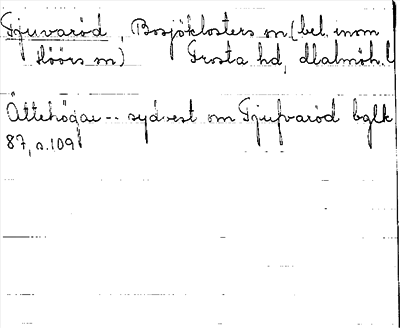 Tjuvaröd, Bosjöklosters sn (bel. inom
Höörs sn) Frosta hd, dlalmöh. l
Ättehögar -- sydvest om Tjufvaröd bglk
87, s. 109